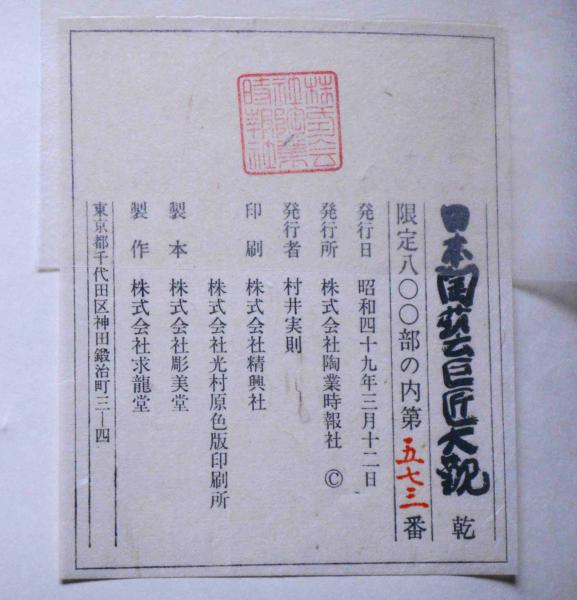 日本国芸巨匠大観 乾
限定八〇〇部の内第五七三番
発行日 昭和四十九年三月十二日
発行所 株式会社陶業時報社 ©
発行者 村井実則
印刷 株式会社精興社
株式会社光村原色版印刷所
製本 株式会社彫美堂
製作 株式会社求龍堂
東京都千代田区神田鍛治町三―四
株式会
社陶業
時報社